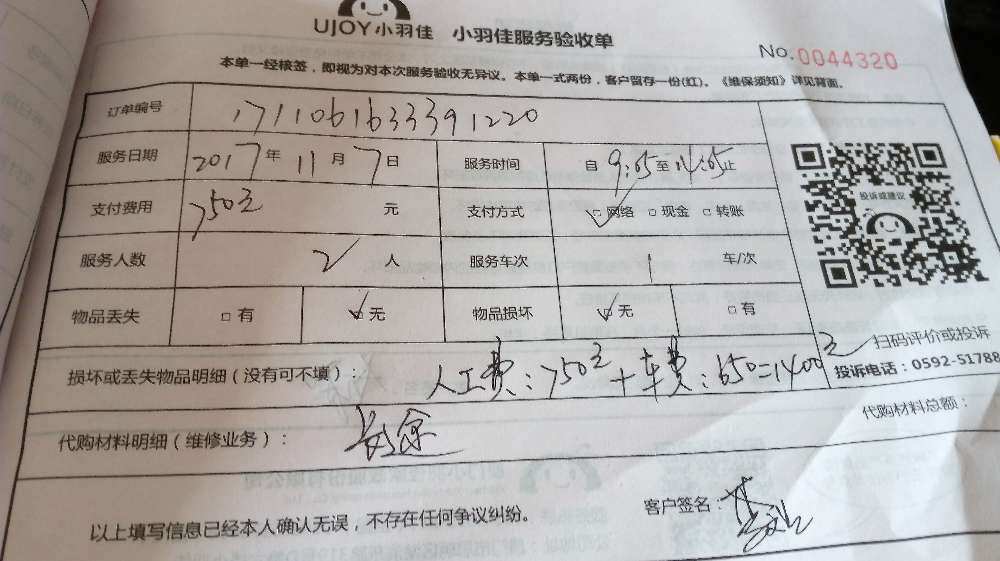 UJOY小羽佳 小羽佳服务验收单
No.0044320
本单一经核签，即视为对本次服务验收无异议。本单一式两份，客户留存一份(红)。《维保须知》详见背面。
订单编号 171106163339 1220
服务日期 2017年 11月 7日 服务时间 自 9:05至 14:05止
支付费用 750元 元 支付方式 ☑网络 □现金 □转账
投诉或建议
服务人数 2 人 服务车次 1 车/次
物品丢失 □有 ☑无 物品损坏 ☑无 □有
扫码评价或投诉
投诉电话：0592-51788
损坏或丢失物品明细（没有可不填）： 人工费：750元+车费：650=1400元
代购材料明细（维修业务）： 代购材料总额：
以上填写信息已经本人确认无误，不存在任何争议纠纷。 客户签名：